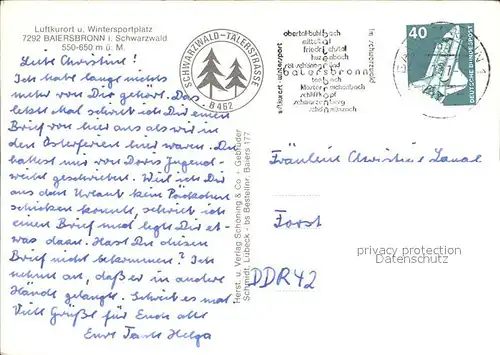 Luftkurort u. Wintersportplatz
7292 BAIERSBRONN i. Schwarzwald
550-650 m ü. M.
SCHWARZWALD-TÄLERSTRASSE
B 462
Liebe Christine!
Ich habe lange nichts
mehr von Dir gehört. Das
letzte Mal schrieb ich Dir einen
Brief von hier aus als wir in
den Osterferien hier waren. Du
hattest mir von Doris Jugend-
weihe geschrieben. Weil ich Dir
aus dem Urlaub kein Päckchen
schicken konnte, schrieb ich
einen Brief und legte Dir et-
was dazu. Hast Du diesen
Brief nicht bekommen? Ich
nehme an, daß er in andere
Hände gelangte. Schreib es mal.
Viele Grüße für Euch alle
Eure Tante Helga
Herst. u. Verlag Schöning & Co + Gebrüder
Schmidt, Lübeck - bs Bestellnr. Baiers 177
luftkurort wintersport
obertal-buhlbach
mitteltal
friedrichstal
huzenbach
baiersbronn
tonbach
klosterreichenbach
schwarzenberg
schönmünzach
im schwarzwald
40
DEUTSCHE BUNDESPOST
Fräulein Christine
Forst
DDR 42
privacy protection
Datenschutz